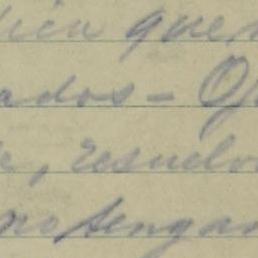 bien que
ados - Op
e, resuelvo
no tengan